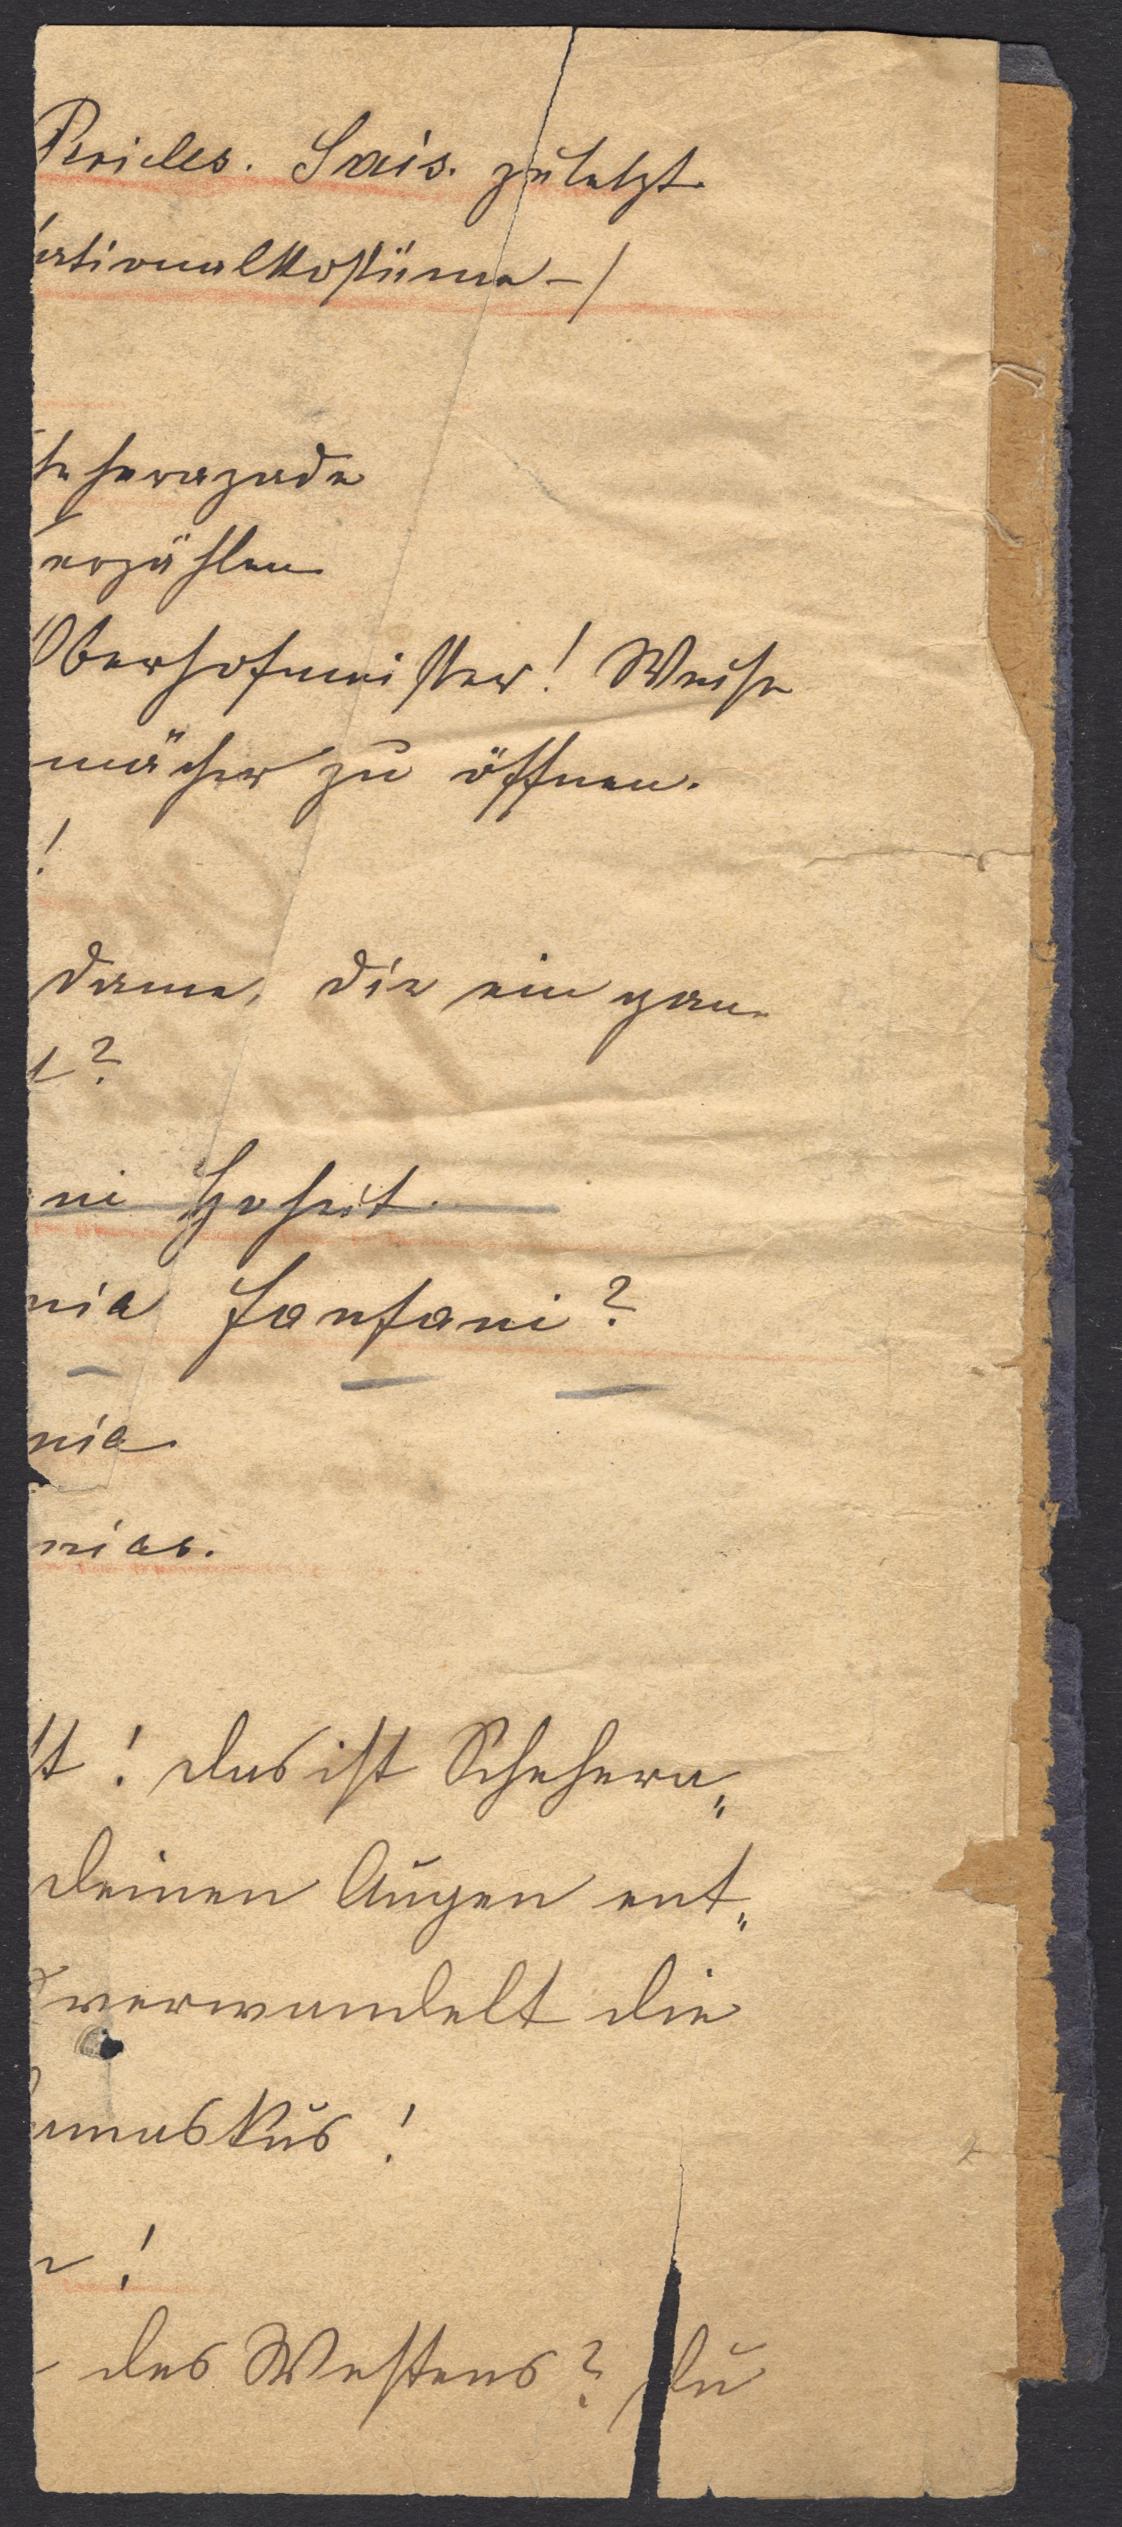 Pericles. Sais. zuletzt
ationalkostüme –/
heherazade
erzählen
Oberhofmeister! Weise
mächer zu öffnen.
!
Dame, die ein gan-
t?
ni Hoheit.
nia Fanfani?
nia
nias.
t! Das ist Schehera„
deinen Augen ent„
verwandelt die
amaskus!
e!
des Westens? Du